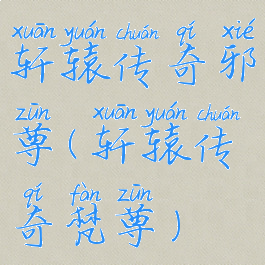 xuān yuán chuán qí xié
轩辕传奇邪
zūn xuān yuán chuán
尊(轩辕传
qí fàn zūn
奇梵尊)